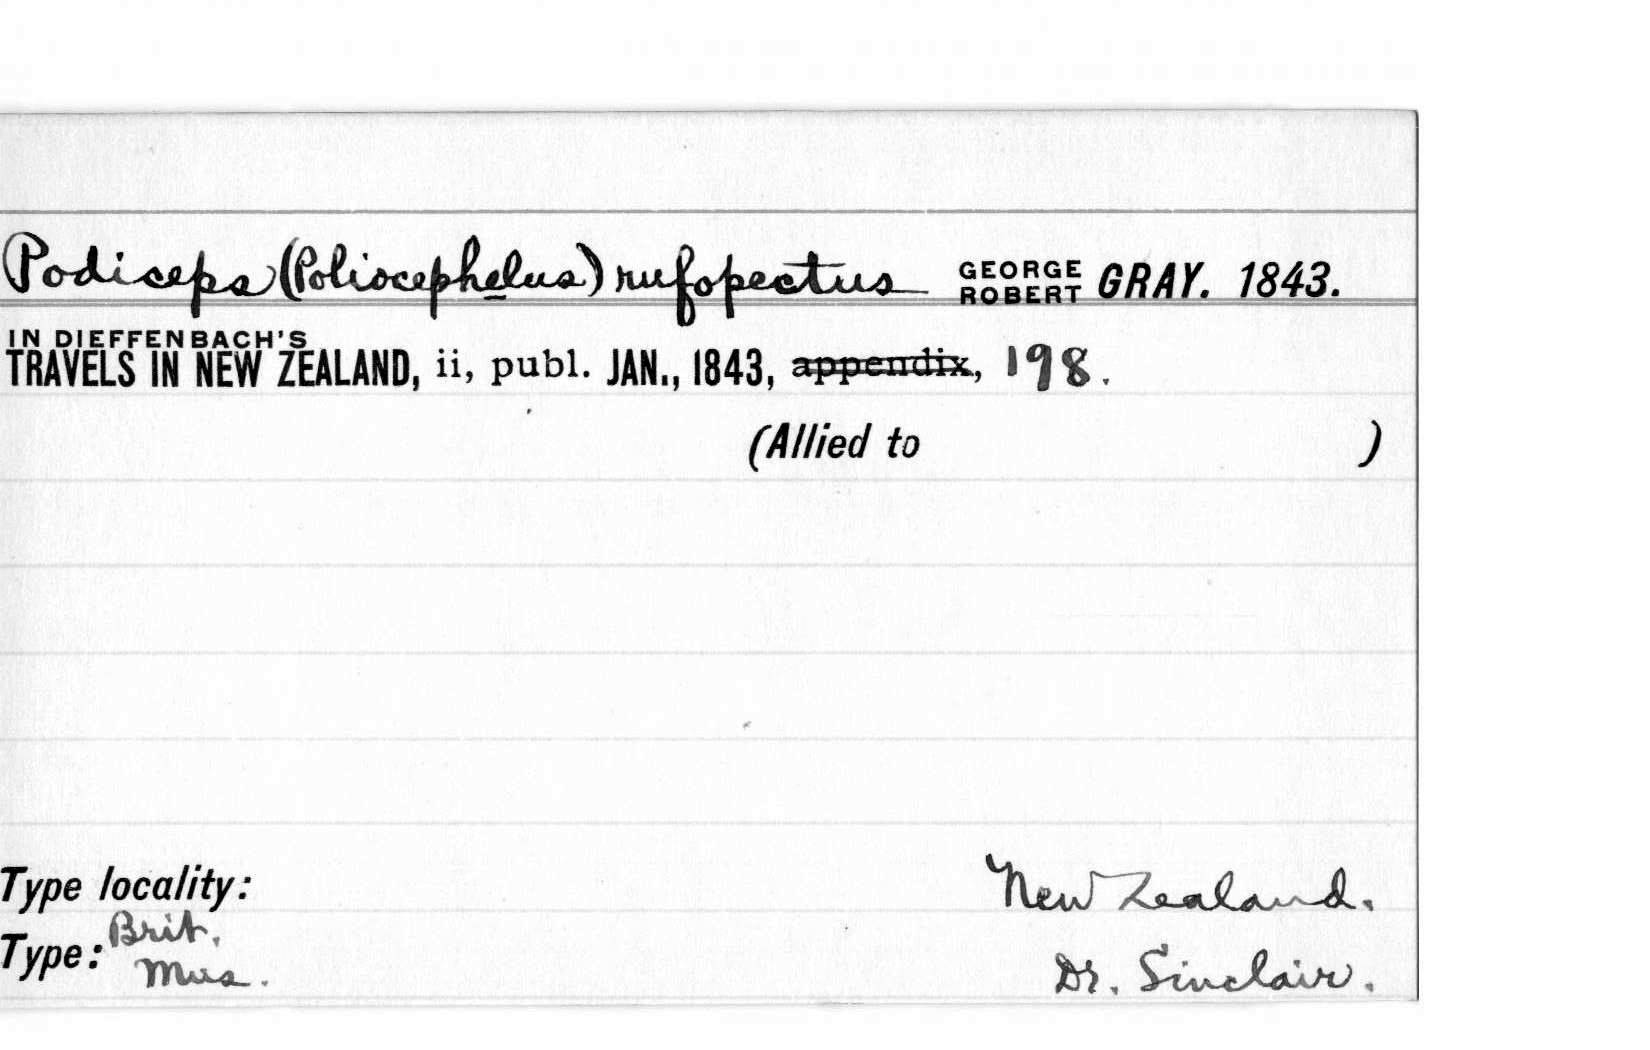 Podiceps (Poliocephelus) rufopectus GEORGE ROBERT GRAY. 1843.
IN DIEFFENBACH'S
TRAVELS IN NEW ZEALAND, ii, publ. JAN., 1843, appendix, 198.
(Allied to )
Type locality: New Zealand.
Type: Brit. Mus. Dr. Sinclair.